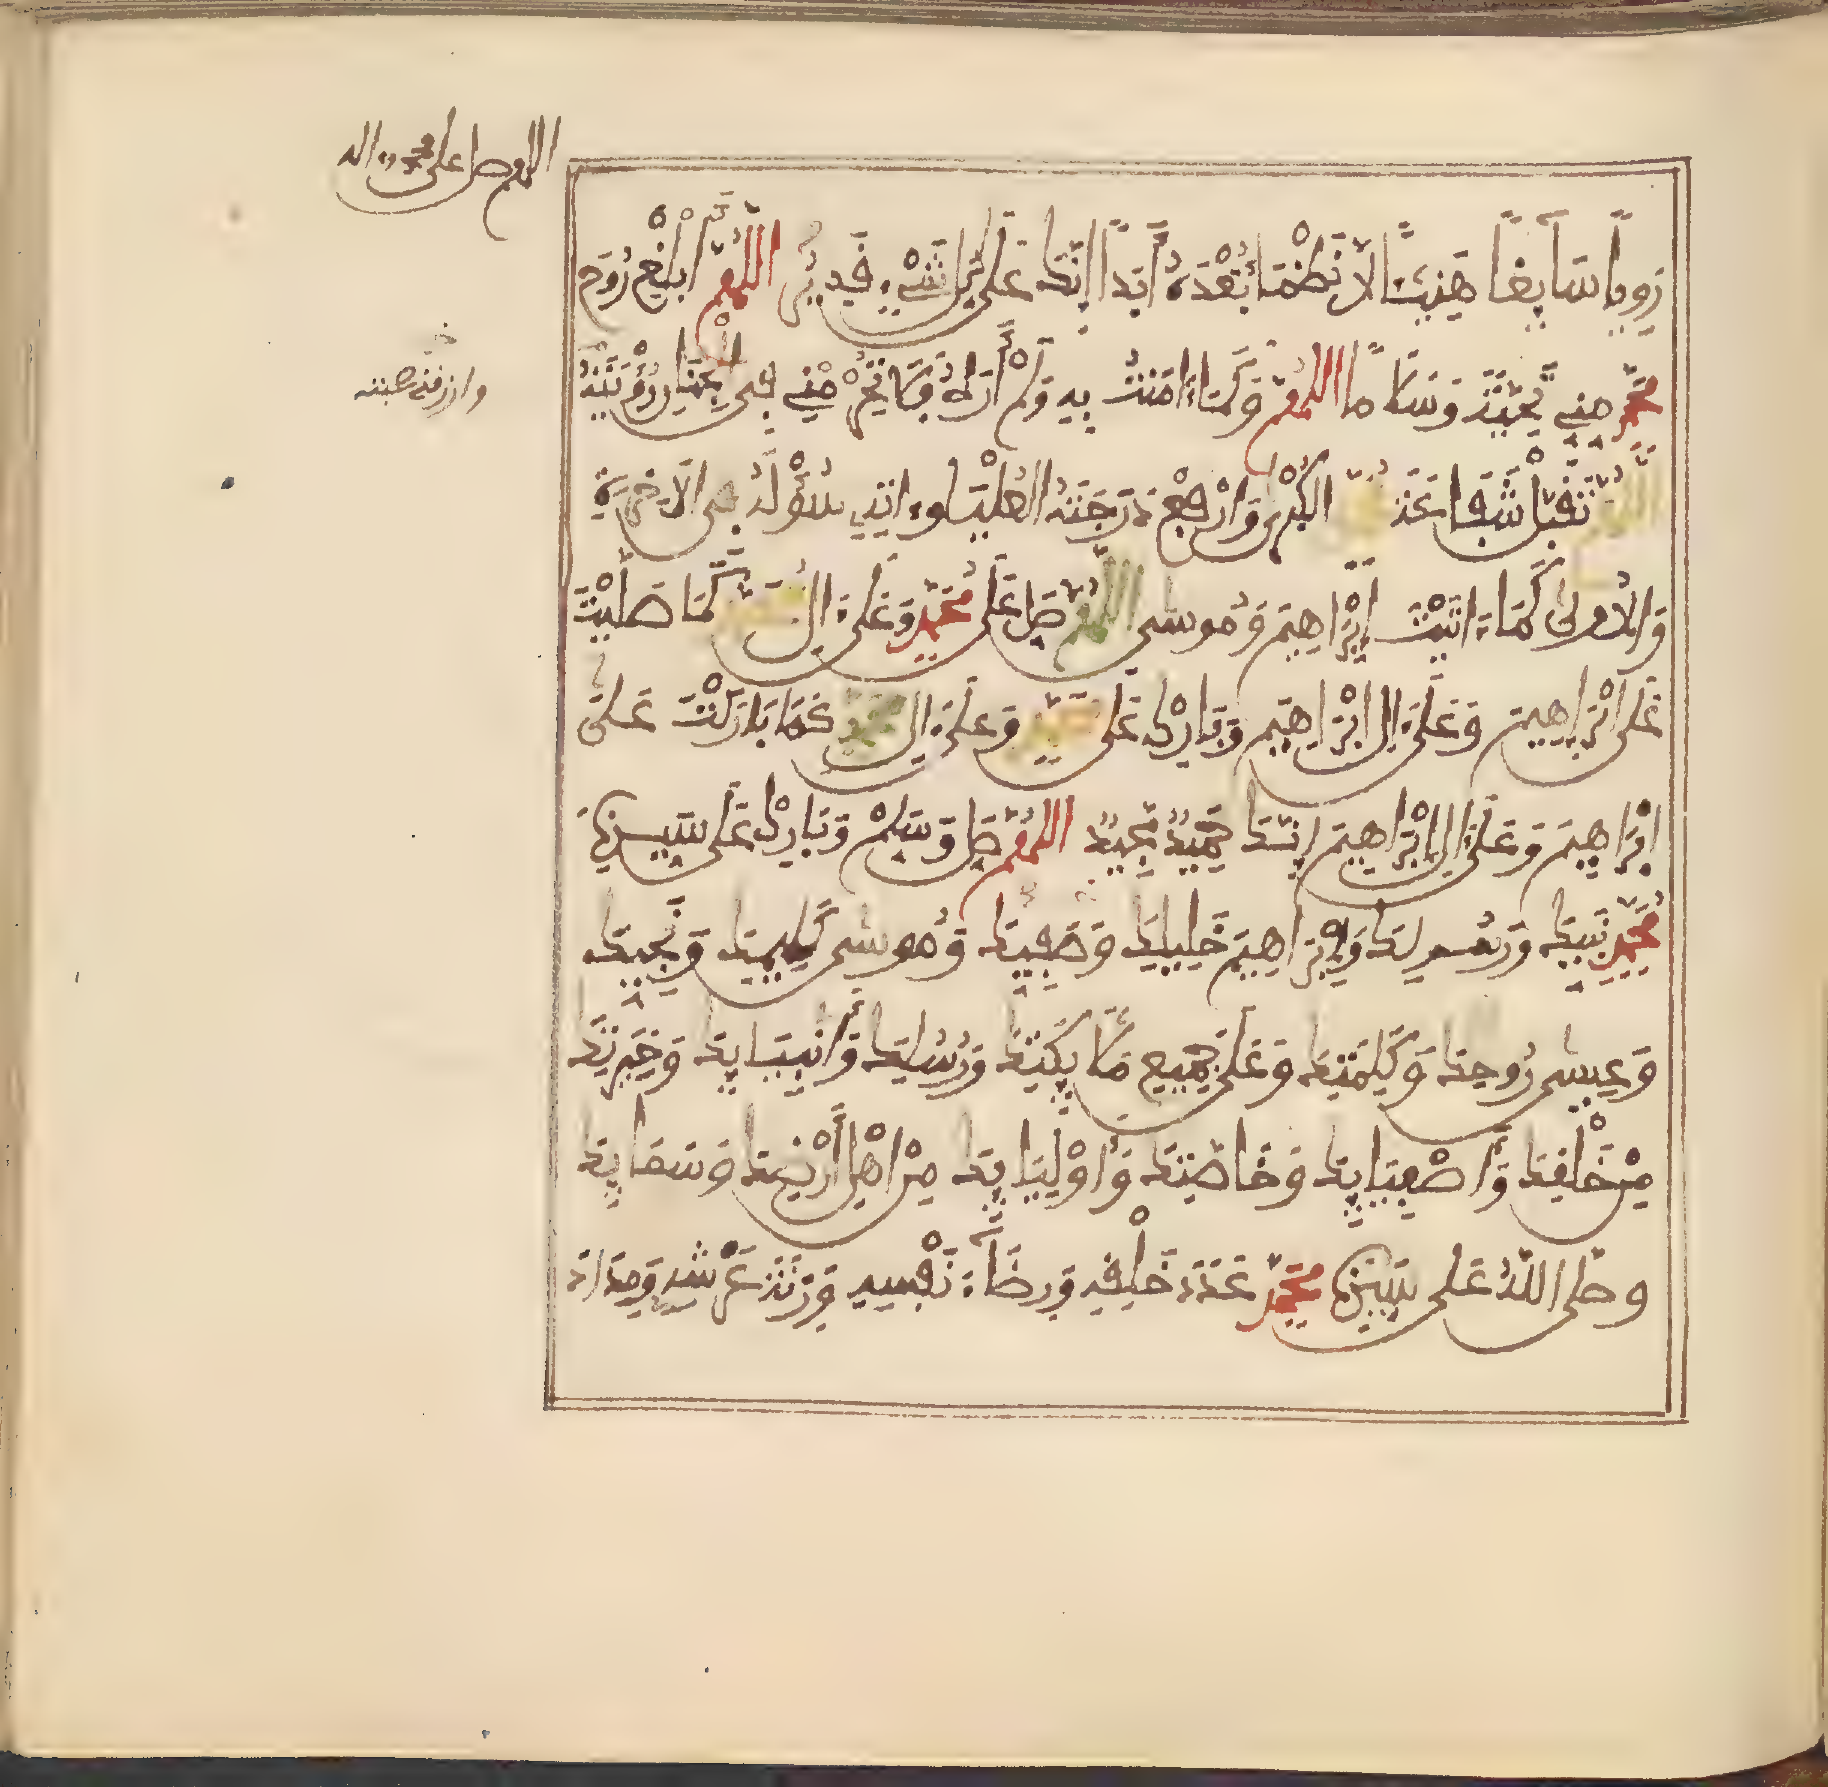 اللهم صل على محمد واله
رَوِيّاً سَآيِغاً هَنِيئاً لاَّ نَظْمَأُ بَعْدَهُ أَبَداً اِنَّكَ عَلَى كُلِّ شَيْءٍ قَدِيرٌ اللَّهُمَّ أَبْلِغْ رُوحَ
مُحَمَّدٍ مِّنِّي تَحِيَّةً وَسَلَاماً اللَّهُمَّ وَكَمَا ءَامَنْتُ بِهِ وَلَمْ أَرَهُ فَلَا تَحْرِمْنِي فِى الْجِنَانِ رُؤْيَتَهُ
وارزقنے صحبته
اللَّهُمَّ تَقَبَّلْ شَفَاعَةَ مُحَمَّدٍ الْكُبْرَى وَارْفَعْ دَرَجَتَهُ الْعُلْيَا وءاتِهِ سُؤْلَهُ فِى الاَخِرَةِ
وَالاُولَى كَمَا ءَاتَيْتَ إِبْرَاهِيمَ وَمُوسَى اللَّهُمَّ صَلِّ عَلَى مُحَمَّدٍ وَعَلَى ءَالِ مُحَمَّدٍ كَمَا صَلَّيْتَ
عَلَى إِبْرَاهِيمَ وَعَلَى ءَالِ إِبْرَاهِيمَ وَبَارِكْ عَلَى مُحَمَّدٍ وَعَلَى ءَالِ مُحَمَّدٍ كَمَا بَارَكْتَ عَلَى
إِبْرَاهِيمَ وَعَلَى ءَالِ إِبْرَاهِيمَ إِنَّكَ حَمِيدٌ مَّجِيدٌ اللَّهُمَّ صَلِّ وَسَلِّمْ وَبَارِكْ عَلَى سَيِّدِنَا
مُحَمَّدٍ نَّبِيِّكَ وَرَسُولِكَ وَإِبْرَاهِيمَ خَلِيلِكَ وَصَفِيِّكَ وَمُوسَى كَلِيمِكَ وَنَجِيِّكَ
وَعِيسَى رُوحِكَ وَكَلِمَتِكَ وَعَلَى جَمِيعِ مَلَائِكَتِكَ وَرُسُلِكَ وَأَنْبِيَائِكَ وَخِيَرَتِكَ
مِنْ خَلْقِكَ وَأَصْفِيَائِكَ وَخَاصَّتِكَ وَأَوْلِيَائِكَ مِنْ اَهْلِ أَرْضِكَ وَسَمَائِكَ
وصَلَّى اللَّهُ عَلَى سَيِّدِنَا مُحَمَّدٍ عَدَدَ خَلْقِهِ وَرِضَاءَ نَفْسِهِ وَزِنَةَ عَرْشِهِ وَمِدَادَ